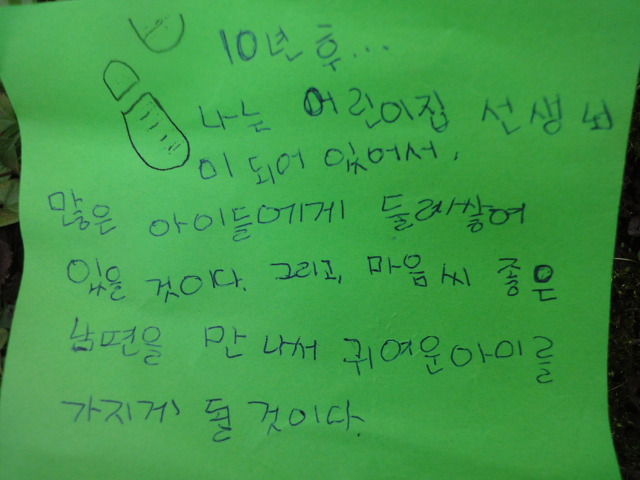 10년 후...
나는 어린이집 선생님
이 되어 있어서,
많은 아이들에게 둘러쌓여
있을 것이다. 그리고, 마음씨 좋은
남편을 만나서 귀여운아이를
가지게 될 것이다.